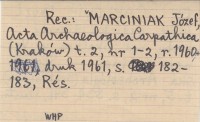 Rec.: "MARCINIAK Józef,
Acta Archaeologica Carpathica
(Kraków) t. 2, nr 1-2, r. 1960-
1961, druk 1961, s. 182-
183, Rés.
WHP